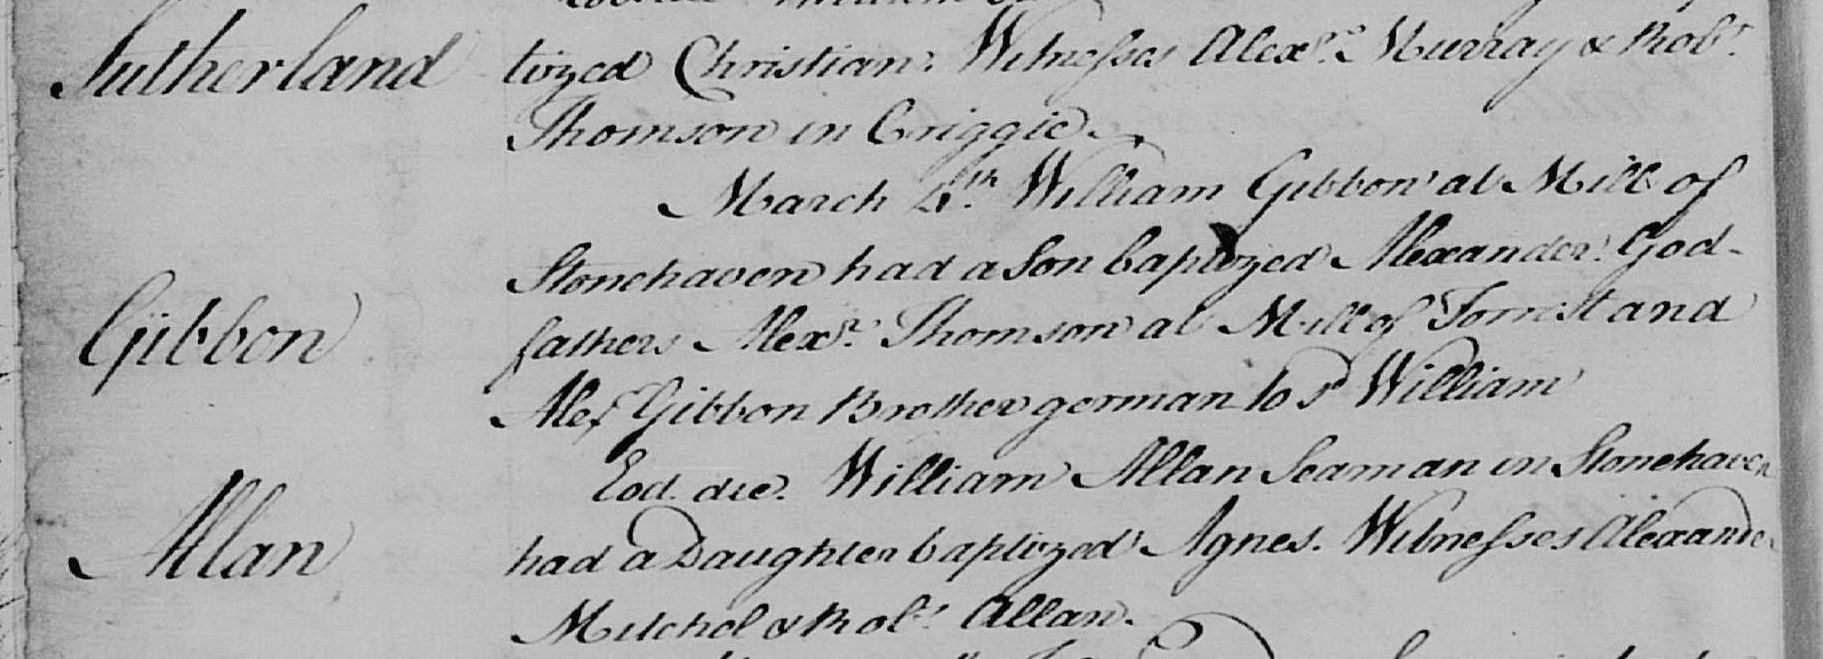 Sutherland
tized Christian. Witnesses Alexr. Murray & Robt.
Thomson in Criggie.
March 4th. William Gibbon at Mill of
Stonehaven had a Son baptized Alexander. God-
Gibbon
fathers Alexr. Thomson at Mill of Forrest and
Alexr Gibbon Brother german to sd William
Eod. die. William Allan Seaman in Stonehaven
Allan
had a Daughter baptized Agnes. Witnesses Alexander
Mitchel & Robt. Allan.